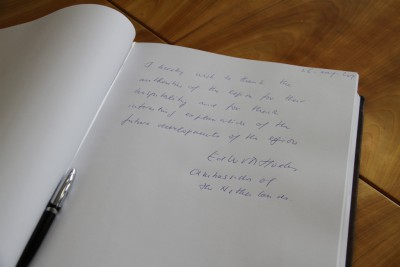 I hereby wish to thank the
authorities of the region for their
hospitality and for their
interesting explanation of the
future developments of the
Ambassador of
the Netherlands